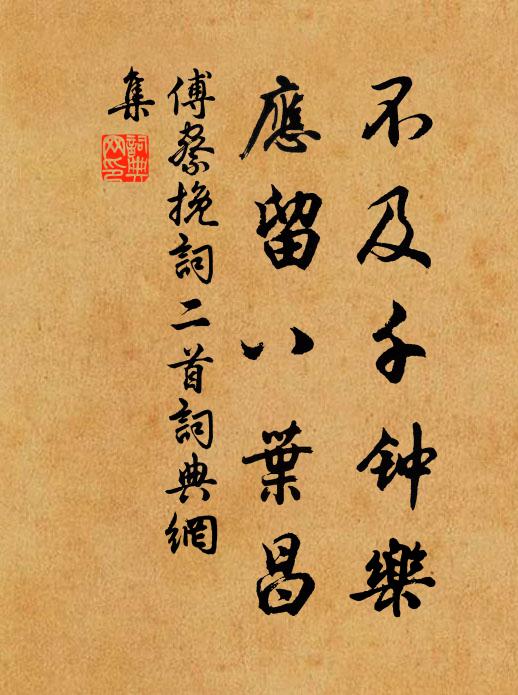 不及千钟樂
應留八葉昌
傅察挽詞二首詞典網
集
詞典網印